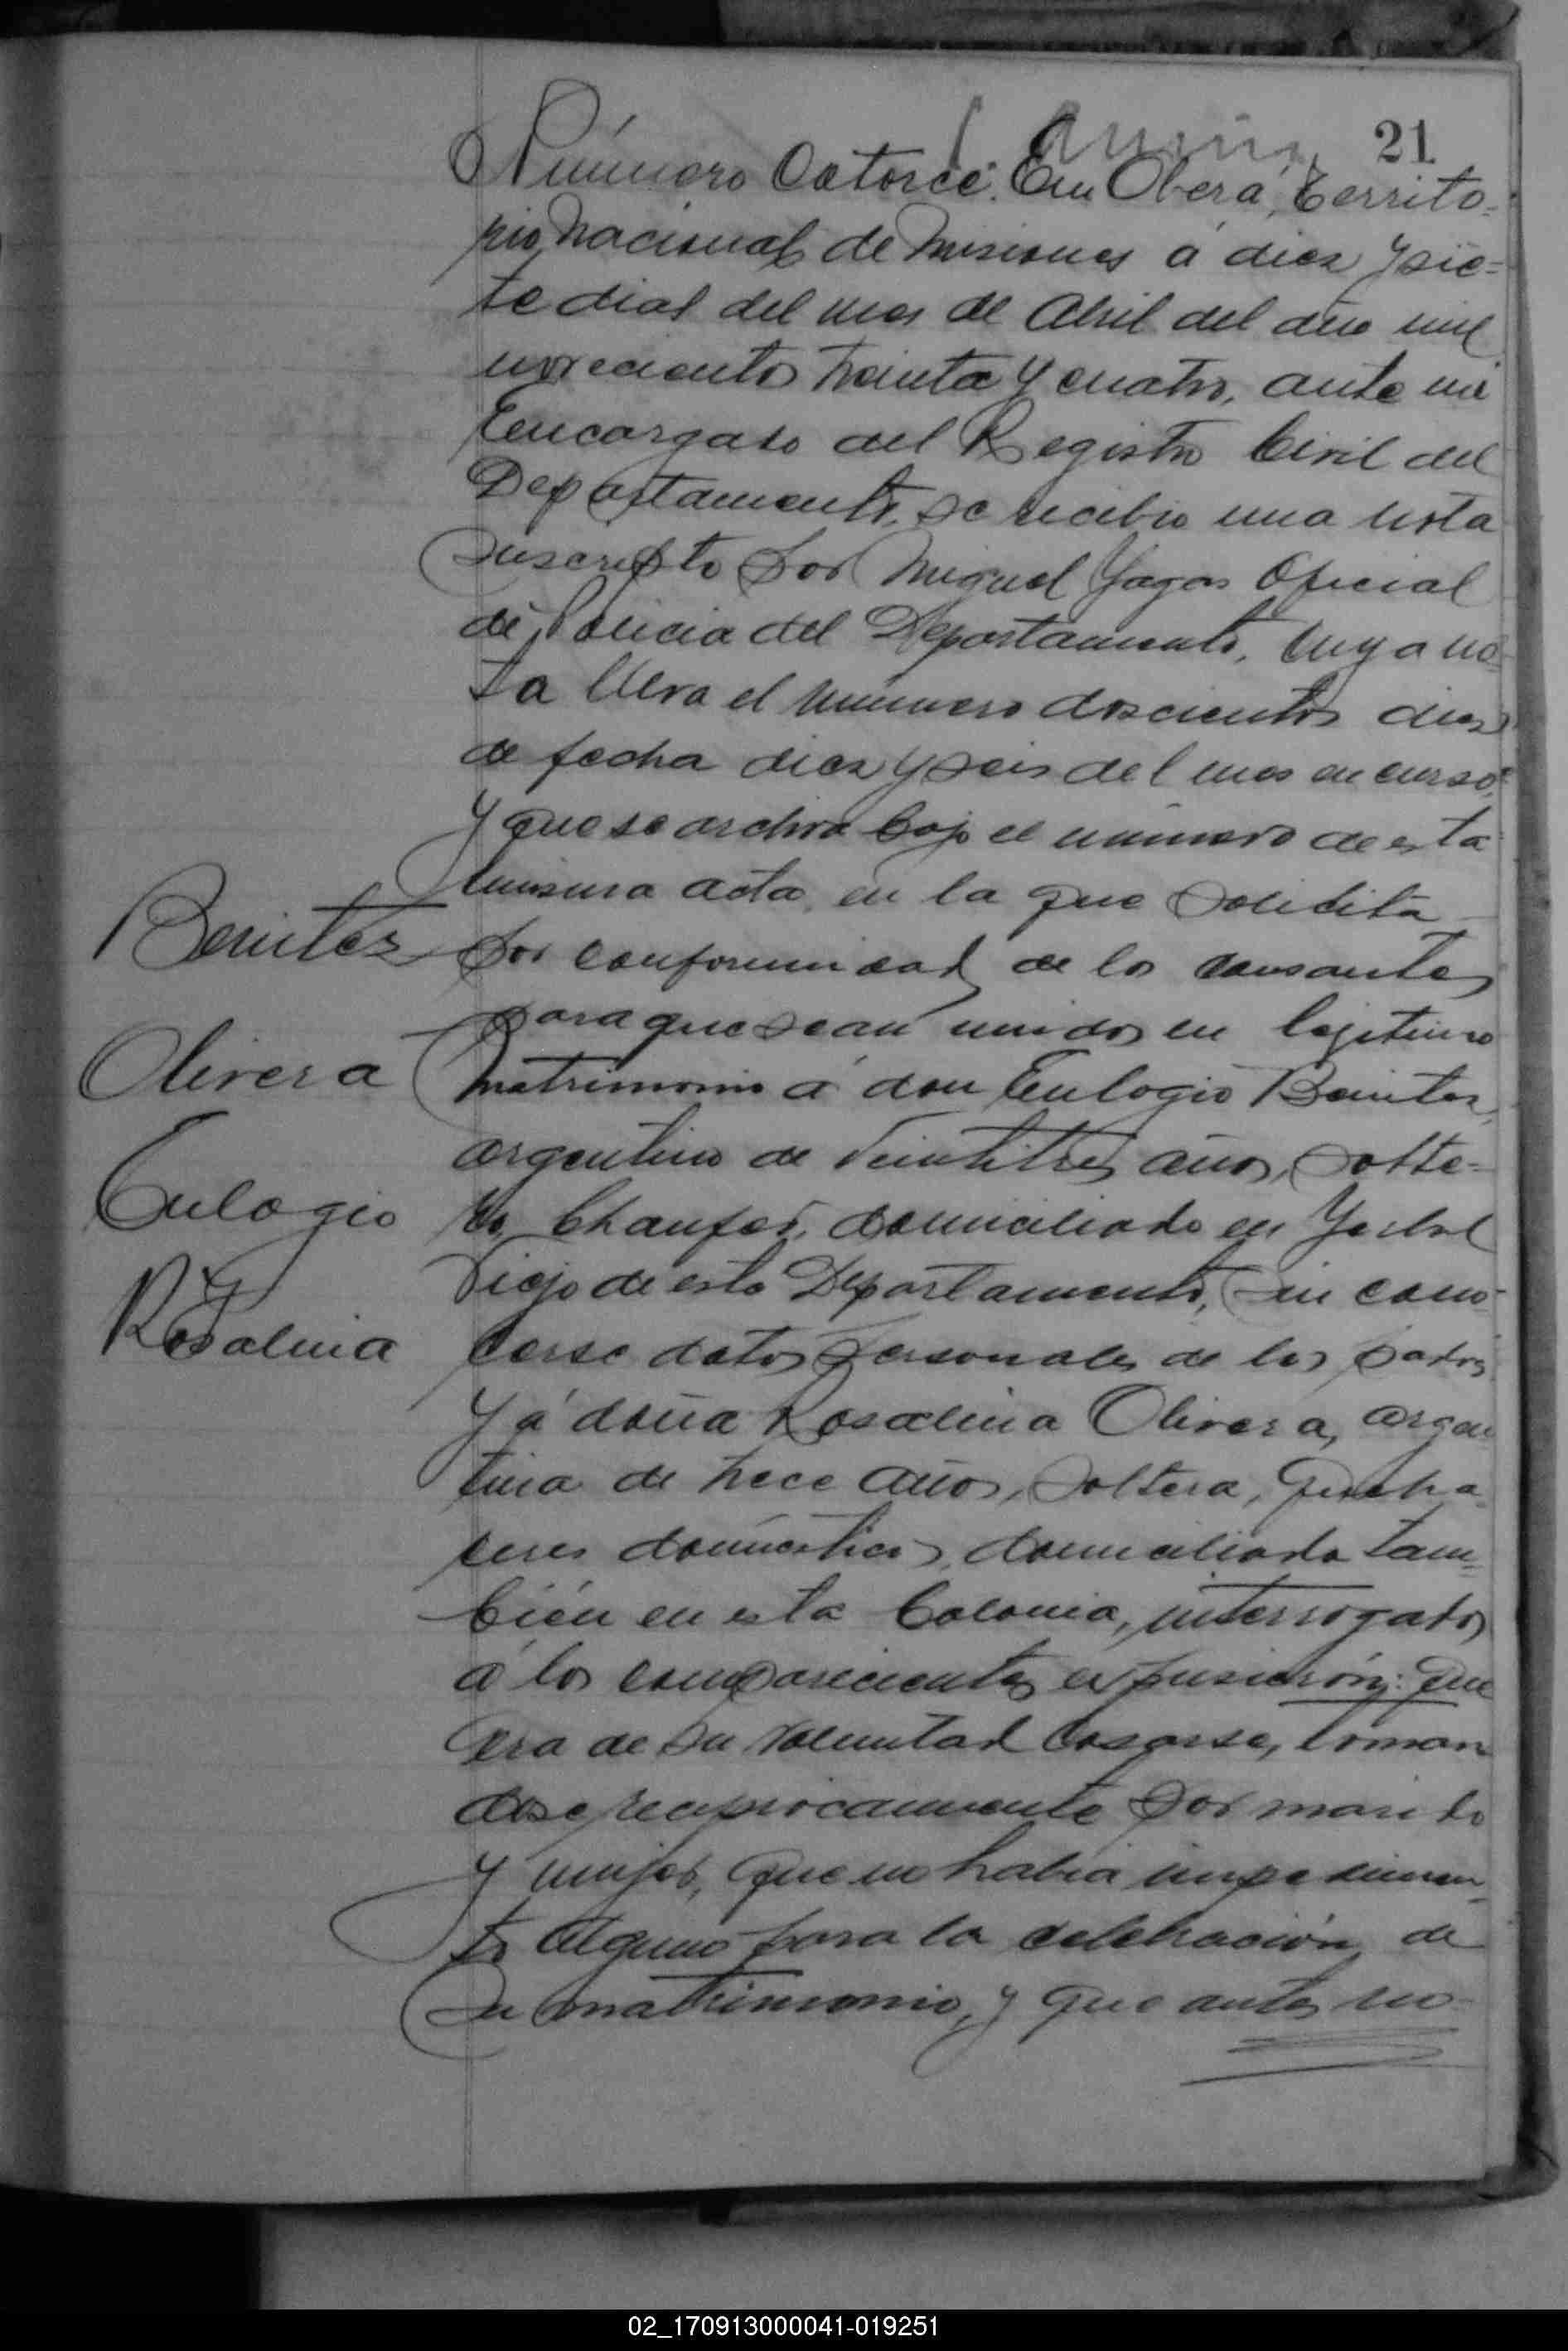 21
Número Catorce. En Oberá, Territo-
rio Nacional de Misiones á diez y sie=
te dias del mes de Abril del año mil
novecientos treinta y cuatro, ante mi
Encargado del Registro Civil del
Departamento, se recibio una nota
suscripta por Miguel Oficial
de Policia del Departamento, cuya no-
ta lleva el número doscientos diez
de fecha diez y seis del mes en curso,
y que se archiva bajo el número de esta
misma acta, en la que solicita
por conformidad de los causantes
para que sean unidos en lejitimo
matrimonio á don Eulogio Benitez,
argentino de veintitres años, solte=
ro, Chaufer, domiciliado en Yerbal
Viejo de este Departamento, sin cono-
cerse datos personales de los padres
y á doña Rosalina Olivera, argen
tina de trece años, soltera, queha
ceres domésticos, domiciliada tam-
bién en esta Colonia, interrogados
á los comparecientes expusierón: que
era de su voluntad casarse, toman
dose reciprocamente por marido
y mujer, que no habia impedimen-
to alguno para la celebración de
su matrimonio, y que antes no
Benitez
Olivera
Eulogio
y
Rosalina
02_170913000041-019251